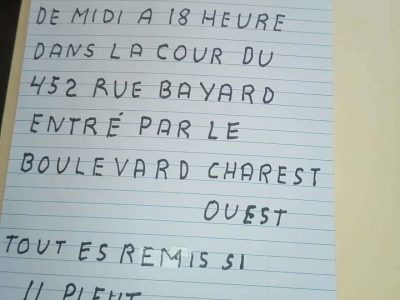 DE MIDI A 18 HEURE
DANS LA COUR DU
452 RUE BAYARD
ENTRÉ PAR LE
BOULEVARD CHAREST
OUEST
TOUT ES REMIS SI
IL PLEUT